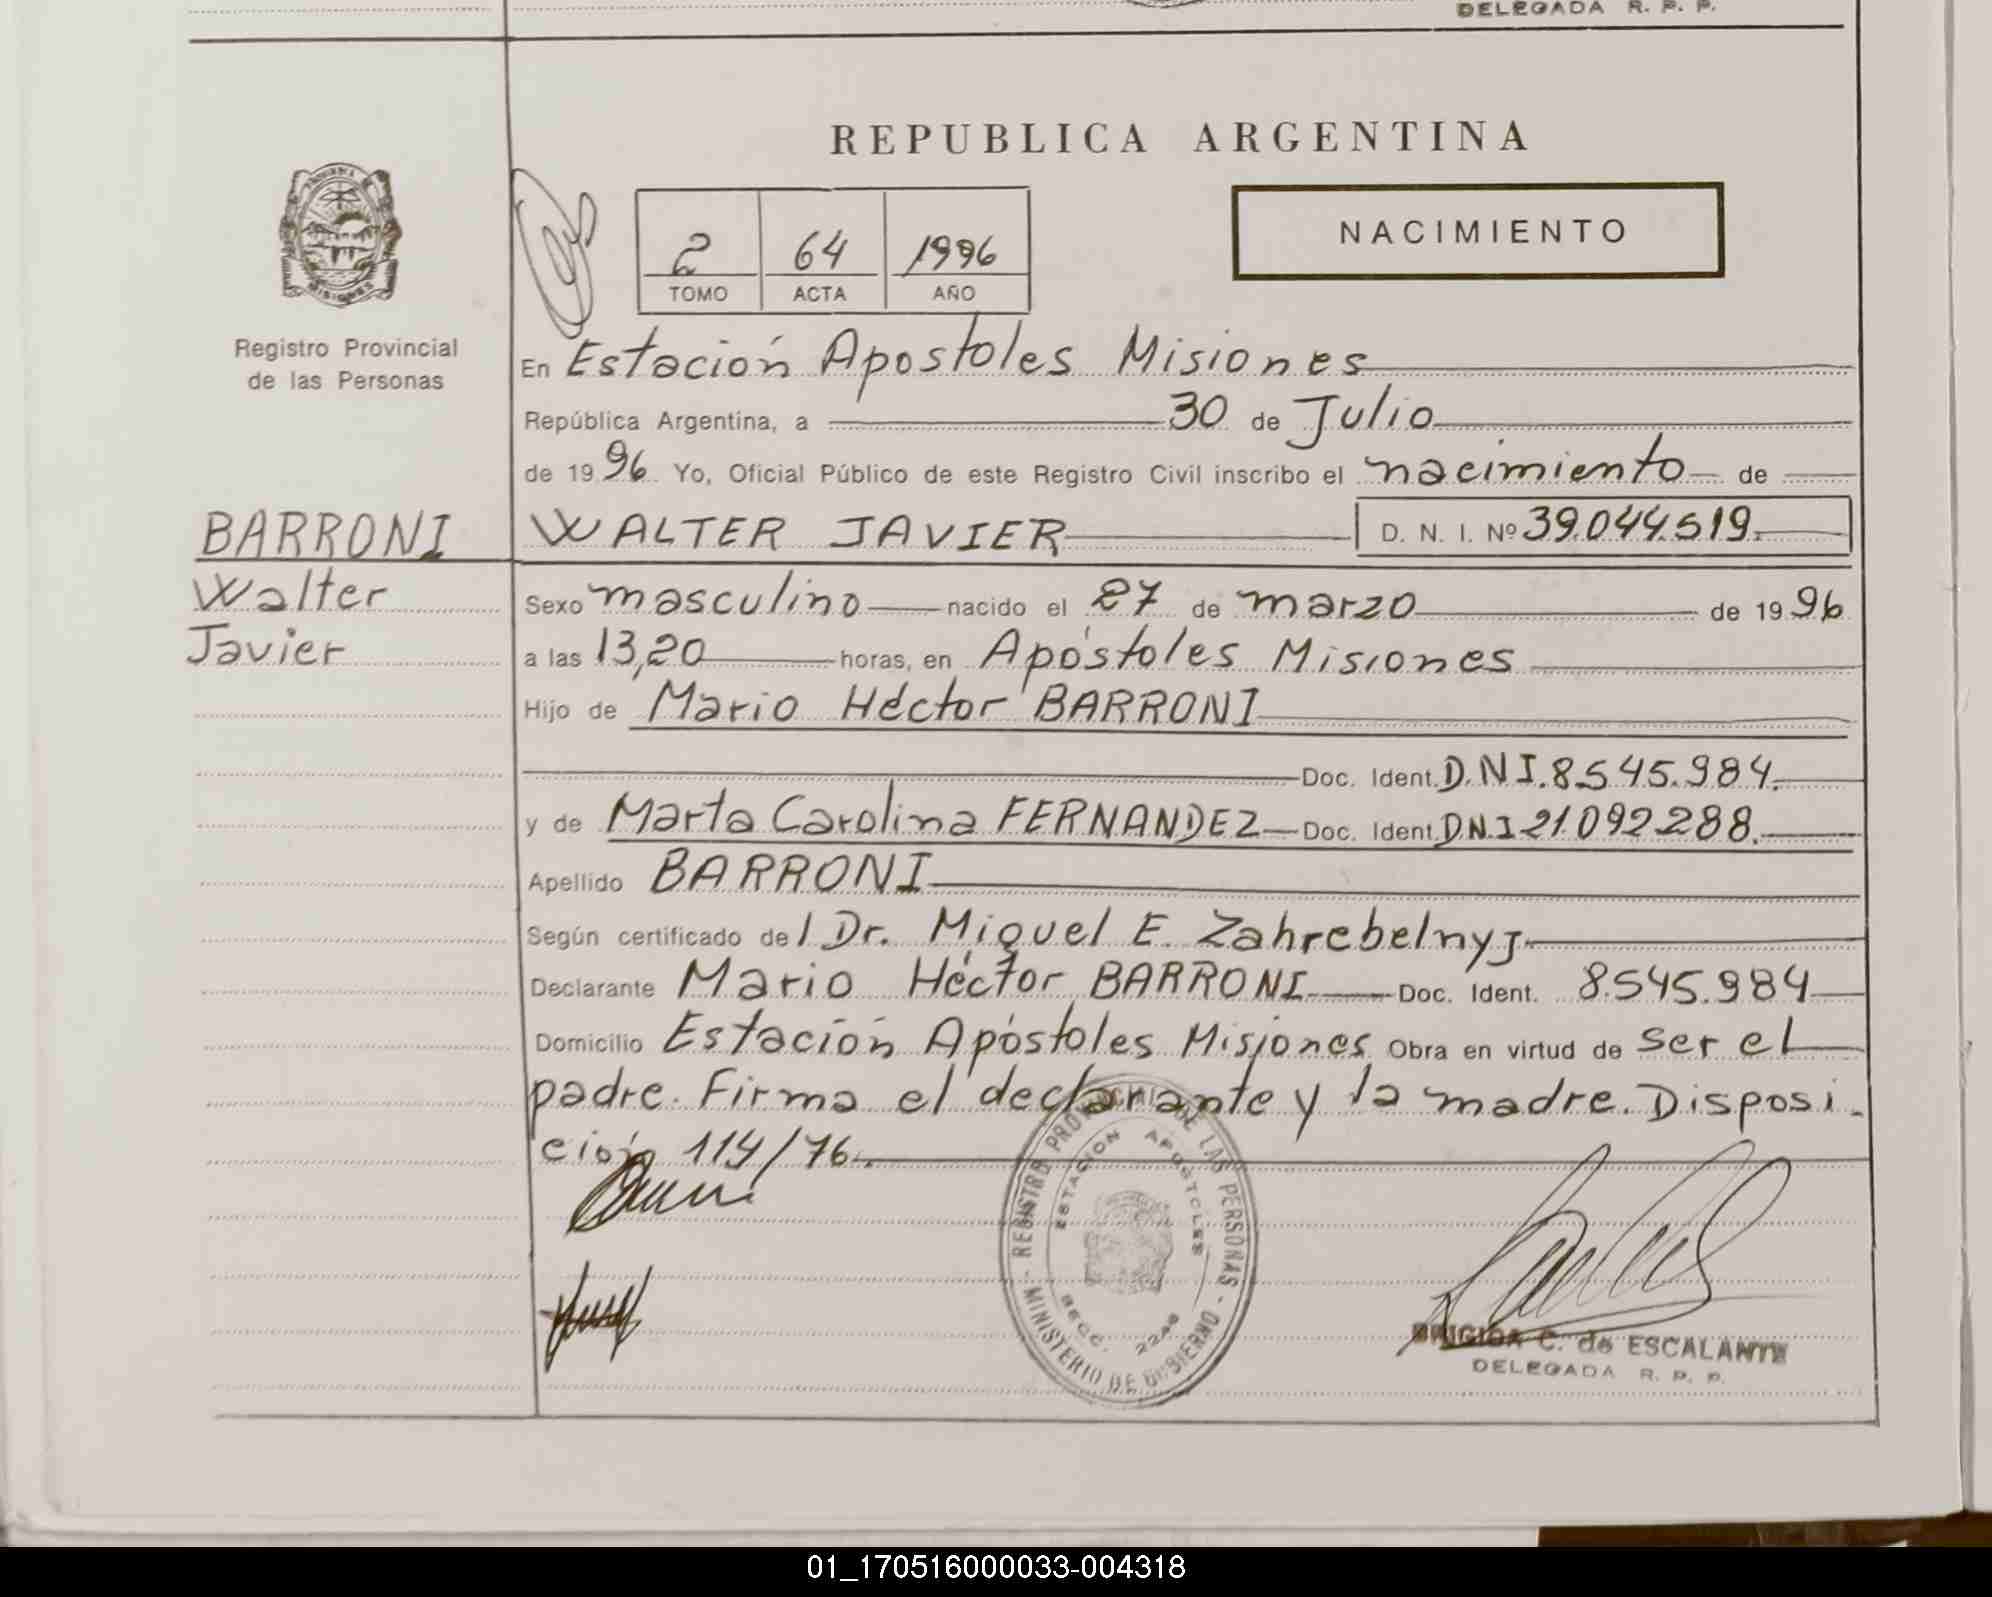 DELEGADA R. P. P.
REPUBLICA ARGENTINA
NACIMIENTO
2 64 1996
TOMO ACTA AÑO
MISIONES
Registro Provincial
de las Personas
En Estación Apostoles Misiones
República Argentina, a 30 de Julio
de 1996 Yo, Oficial Público de este Registro Civil inscribo el nacimiento de
BARRONI
Walter
Javier
WALTER JAVIER D. N. I. Nº 39.044.519.
Sexo masculino nacido el 27 de marzo de 1996
a las 13,20 horas, en Apóstoles Misiones
Hijo de Mario Héctor BARRONI
Doc. Ident. D.N.I. 8545.984.
y de Marta Carolina FERNANDEZ Doc. Ident. D.N.I 21.092.288.
Apellido BARRONI
Según certificado del Dr. Miguel E. Zahrebelnyj.
Declarante Mario Héctor BARRONI Doc. Ident. 8.545.984
Domicilio Estación Apóstoles Misiones Obra en virtud de ser el
padre. Firma el declarante y la madre. Disposi-
ción 114/76.
REGISTRO PROVINCIAL DE LAS PERSONAS - MINISTERIO DE GOBIERNO -
ESTACION APOSTOLES
SECC. 2246
BRIGIDA C. de ESCALANTE
DELEGADA R. P. P.
01_170516000033-004318